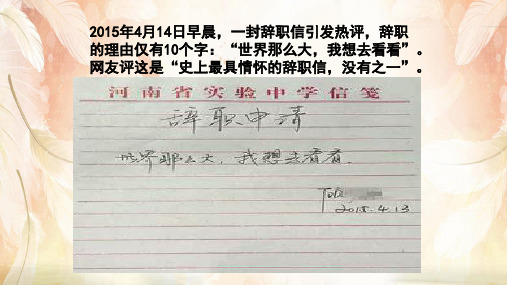 2015年4月14日早晨，一封辞职信引发热评，辞职
的理由仅有10个字：“世界那么大，我想去看看”。
网友评这是“史上最具情怀的辞职信，没有之一”。
河南省实验中学信笺
辞职申请
世界那么大，我想去看看。
2015.4.13